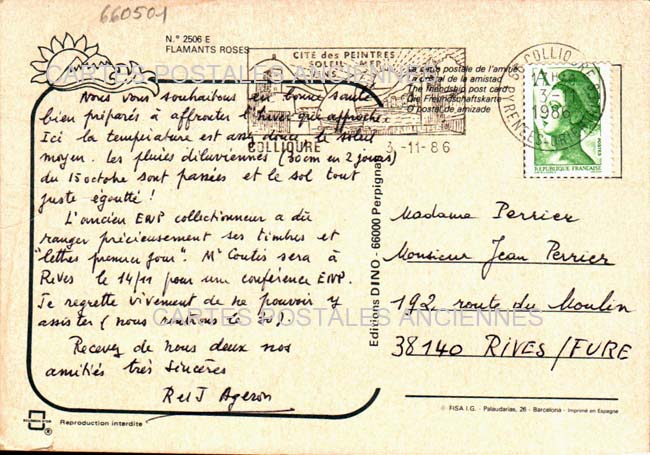 660501
N.° 2506 E
FLAMANTS ROSES
CITÉ des PEINTRES
SOLEIL - MER
VINS
COLLIOURE
3.-11-86
La carte postale de l'amitié
La postal de la amistad
The friendship post card
Die Freundschaftskarte
O postal de amizade
66 COLLIOURE
3
1986
PYRENEES-ORIENTALES
A
POSTES
REPUBLIQUE FRANÇAISE
CARTES POSTALES ANCIENNES
Nous vous souhaitons en bonne santé
bien préparés à affronter l'hiver que approche.
Ici la température est assez douce, le soleil
moyen. les pluies diluviennes (30cm en 2 jours)
du 15 octobre sont passées et le sol tout
juste égoutté !
L'ancien ENP collectionneur a dû
ranger précieusement ses timbres et
"lettres premier jour". Mr Coutis sera à
Rives le 14/11 pour une conférence ENP.
Je regrette vivement de ne pouvoir y
assister (nous rentrons le 30).
Recevez de nous deux nos
amitiés très sincères
R et J Ageron
Editions DINO - 66000 Perpignan
Madame Perrier
Monsieur Jean Perrier
192 route du Moulin
38140 RIVES/FURE
CARTES POSTALES ANCIENNES
Reproduction interdite
© FISA I.G. - Palaudarias, 26 - Barcelona - Imprimé en Espagne